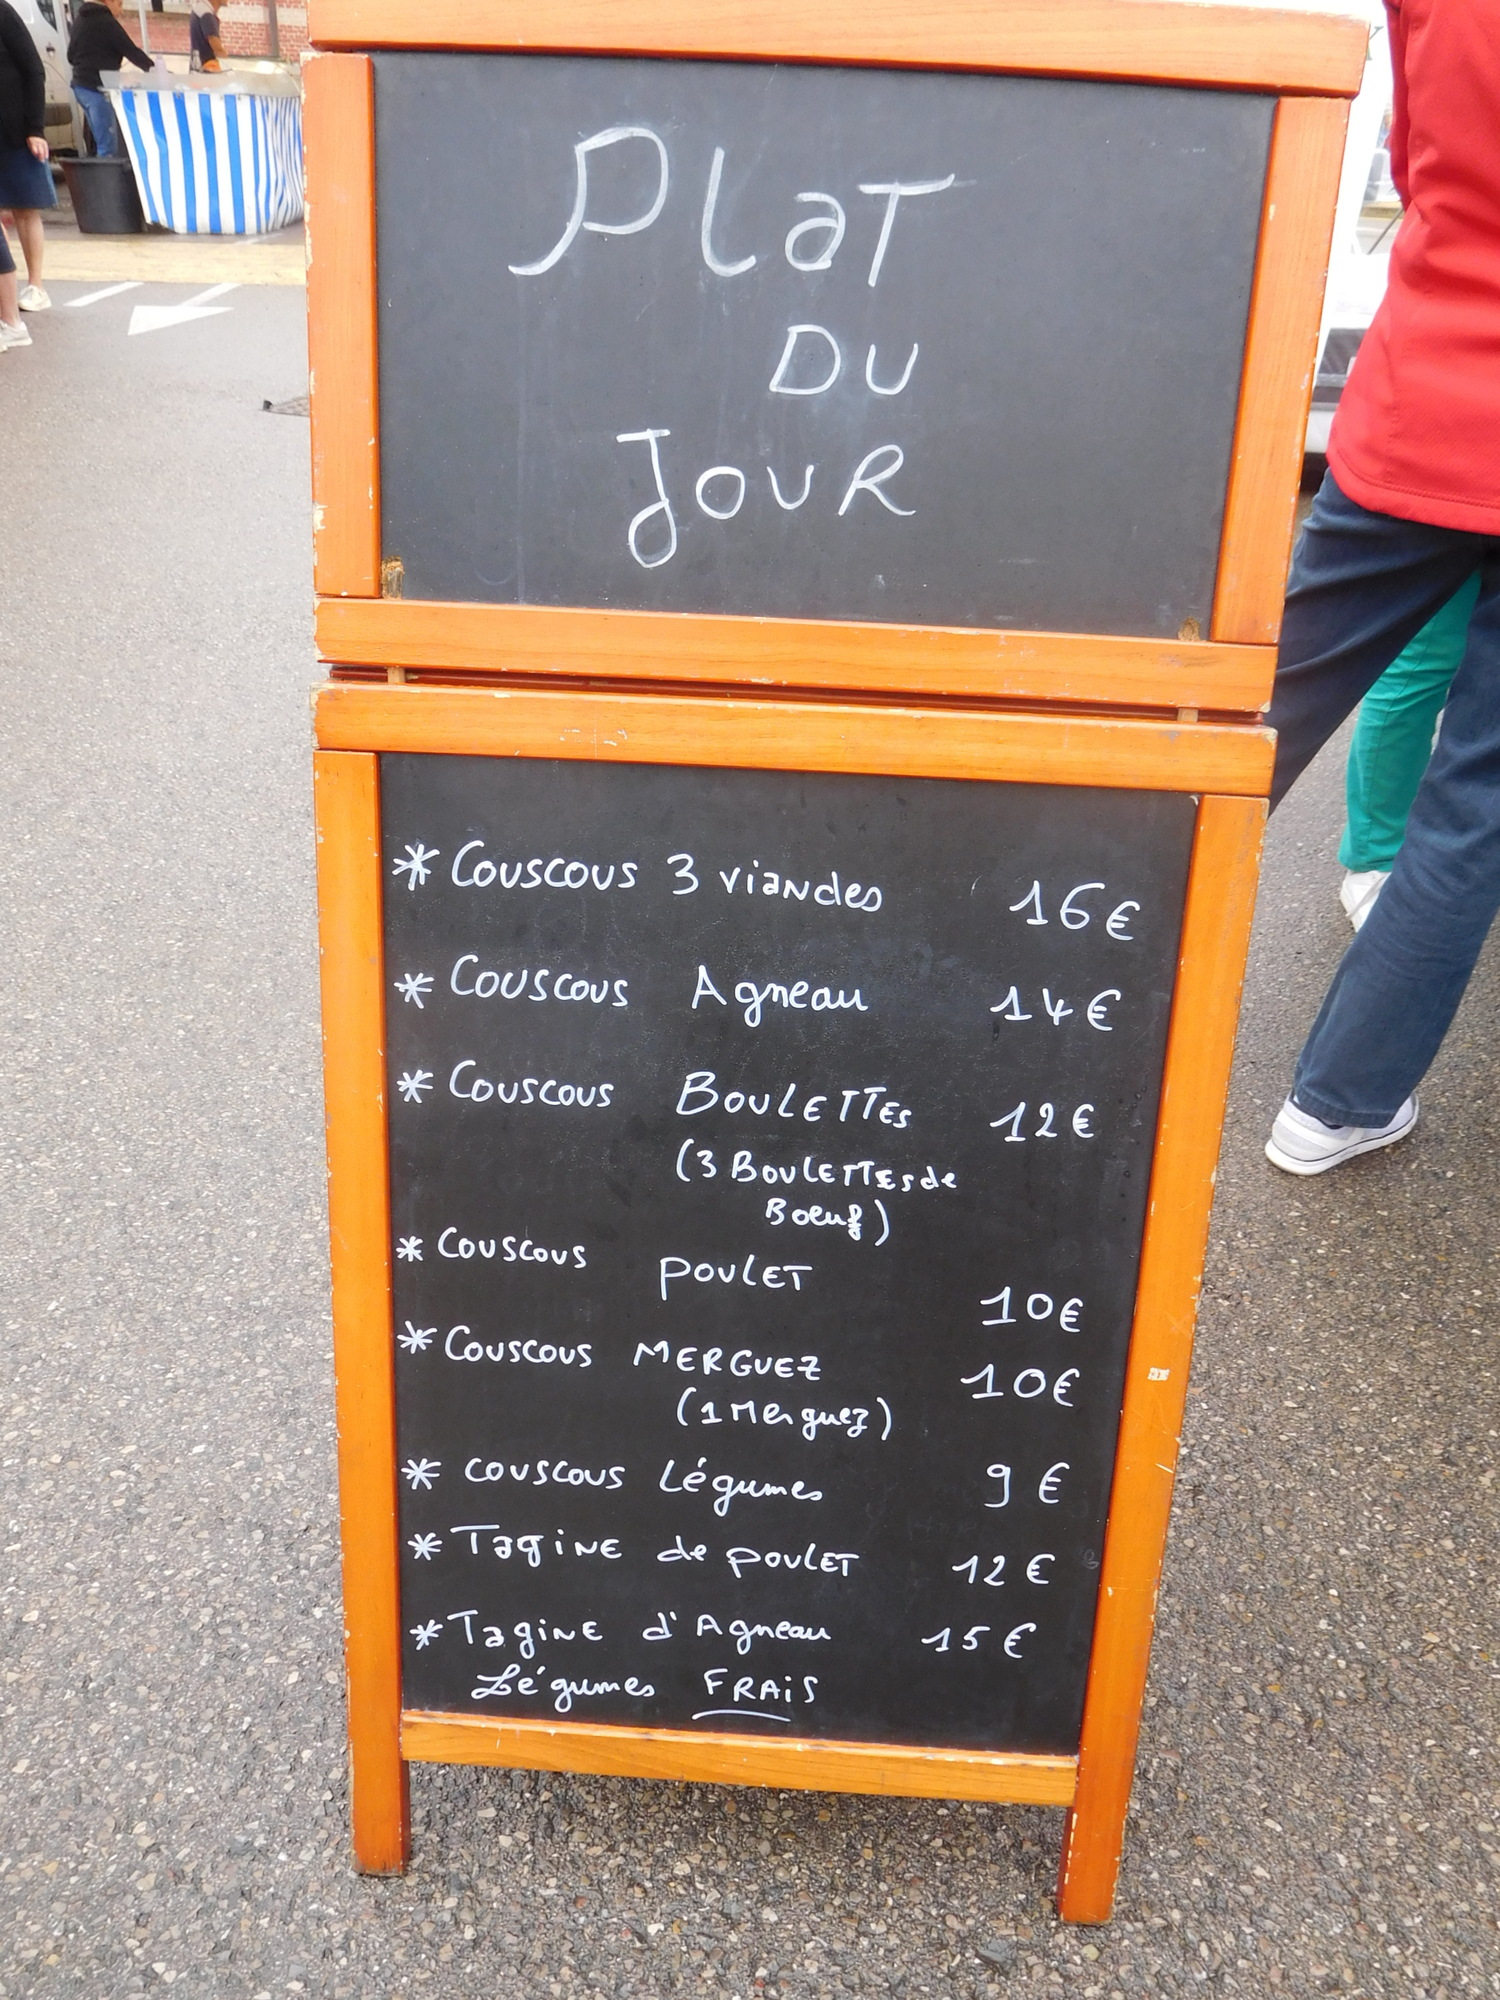 PLaT
DU
JOUR
* Couscous 3 viandes 16€
* Couscous Agneau 14€
* Couscous BOULETTES 12€
(3 BOULETTES de
Boeuf)
* Couscous POULET 10€
* Couscous MERGUEZ 10€
(1 Merguez)
* couscous Légumes 9 €
* TagiNE de POULET 12 €
* TagiNE d'Agneau 15 €
Légumes FRAiS